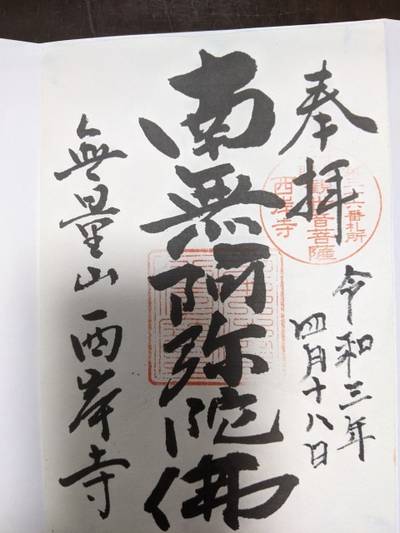 奉拝
令和三年
四月十八日
南無阿弥陀佛
無量山 西岸寺
六番札所
音菩薩
西岸寺